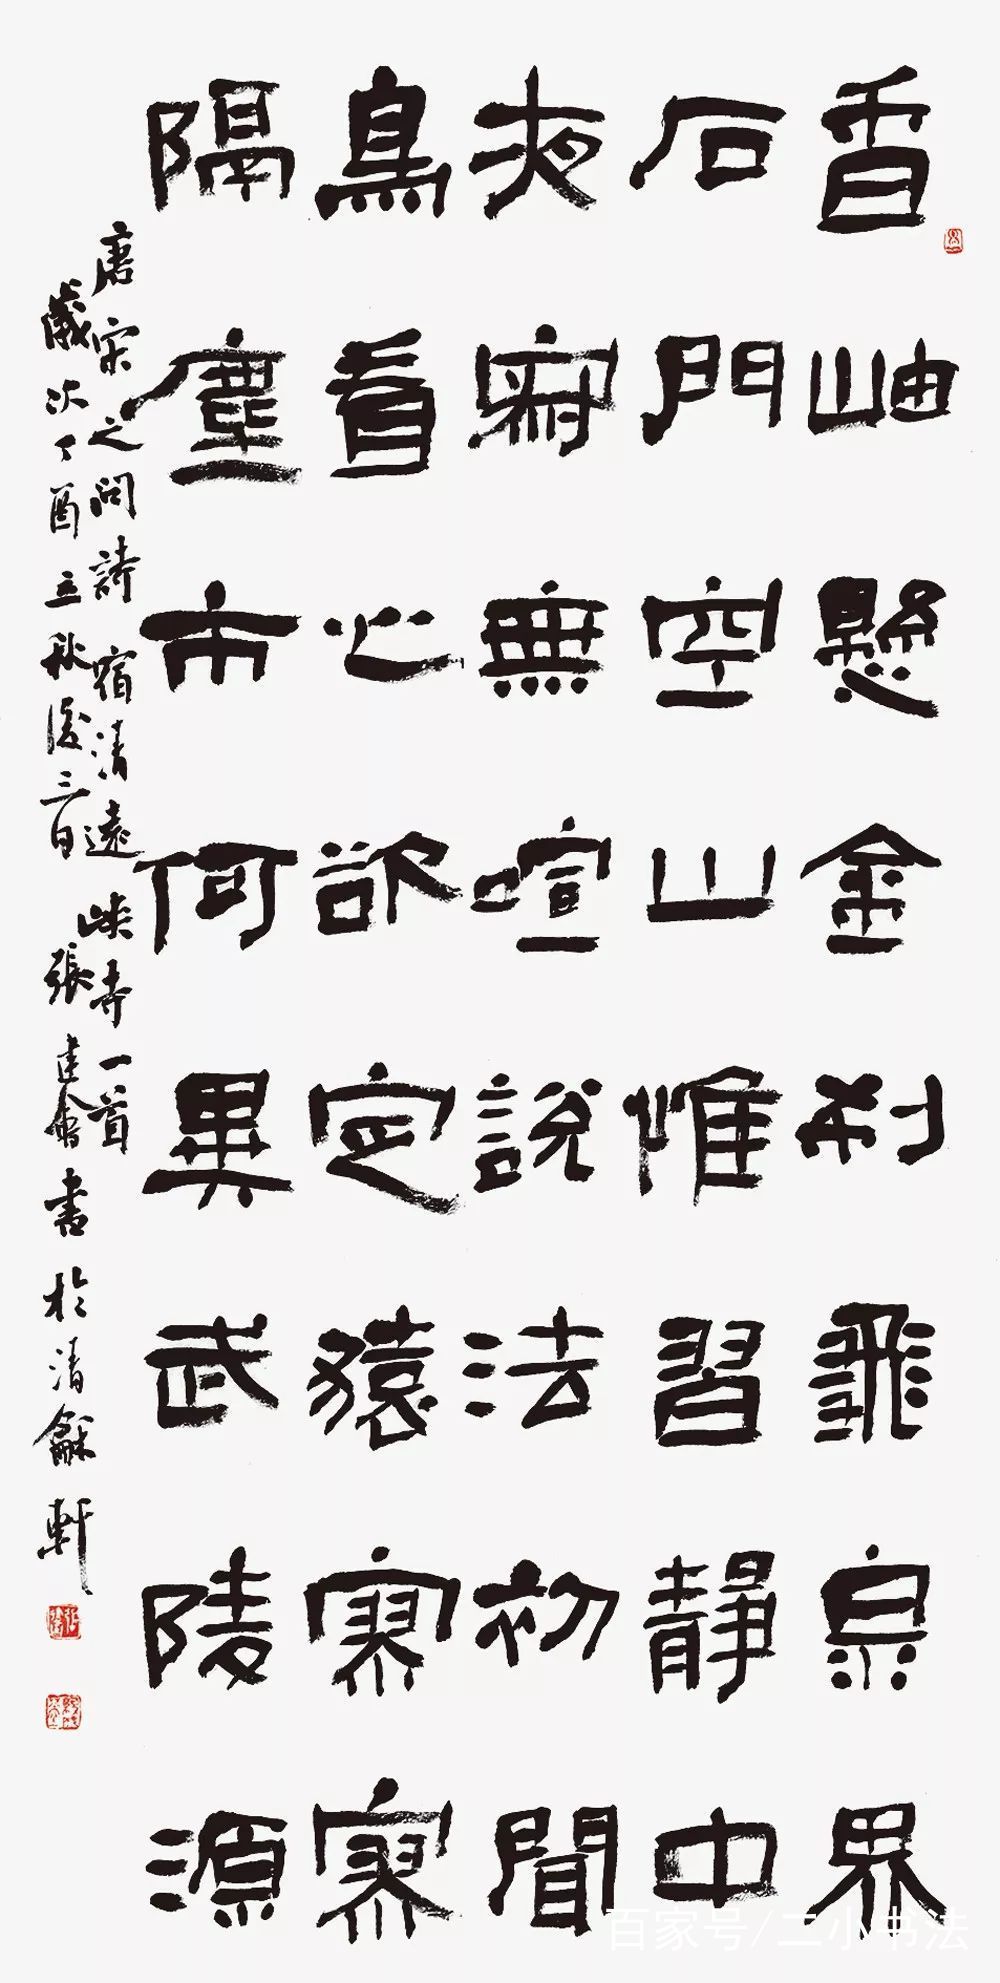 香岫懸金刹飛泉界
石門空山惟習靜中
夜寂無喧說法初聞
鳥看心欲定猿寥寥
隔塵市何異武陵源
唐宋之問詩宿清遠峽寺一首
歲次丁酉立秋後三日張建會書於清龢軒
百家号/二小书法